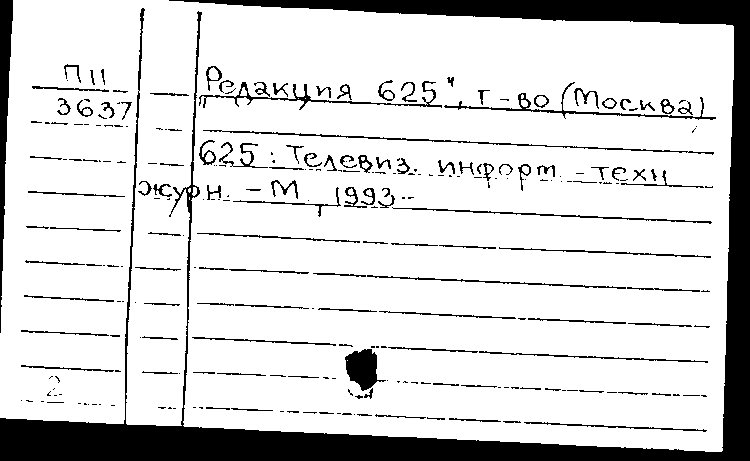 П11
3637
"Редакция 625", т-во (Москва)
625 : Телевиз. информ.-техн
журн. - М, 1993-
2